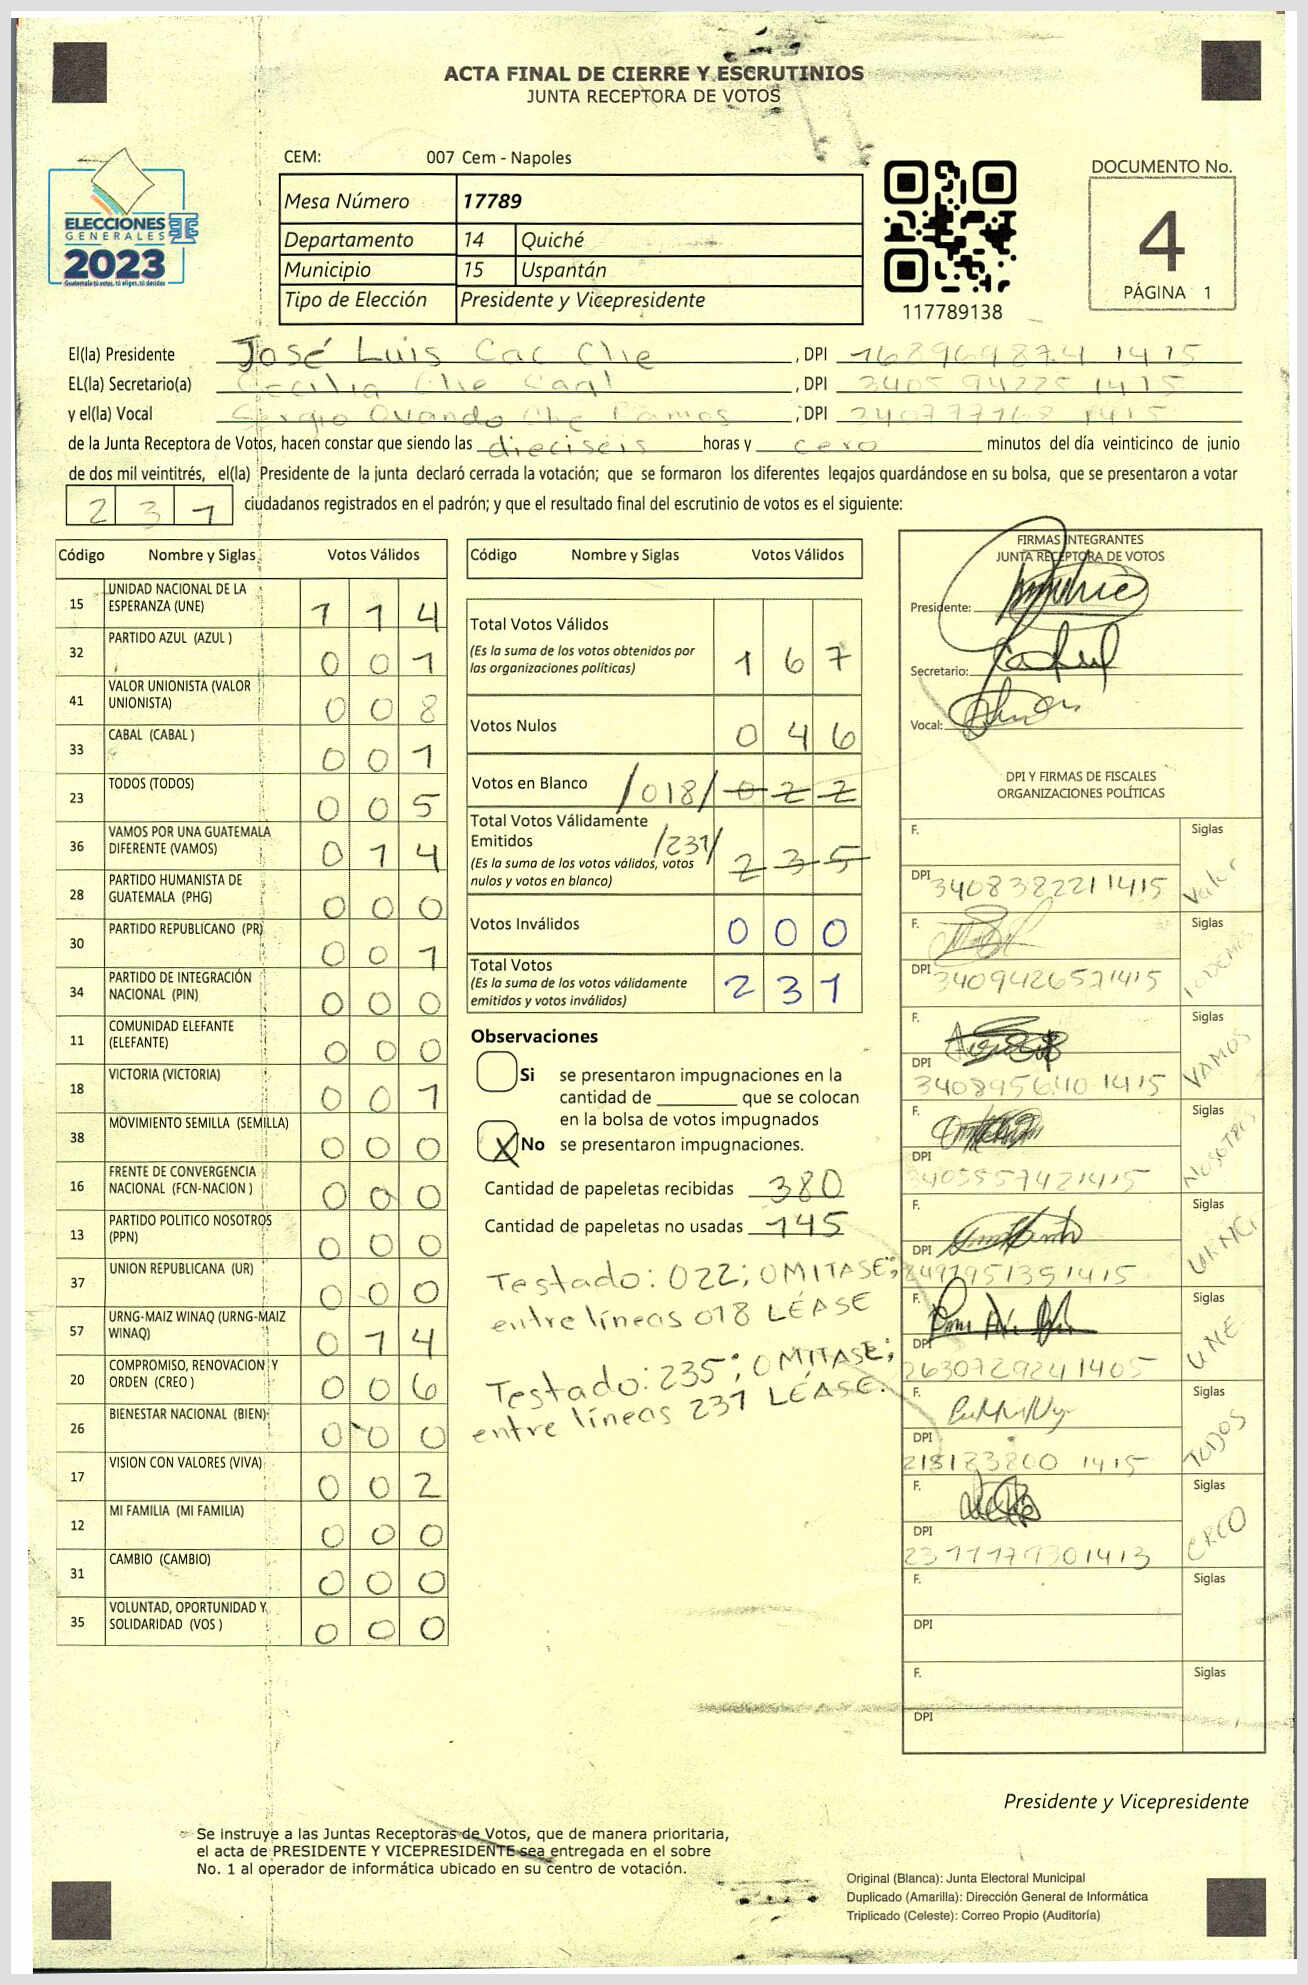 ACTA FINAL DE CIERRE Y ESCRUTINIOS
JUNTA RECEPTORA DE VOTOS
ELECCIONES
GENERALES
2023
Guatemala tú votas, tú eliges, tú decides
CEM: 007 Cem - Napoles
Mesa Número 17789
Departamento 14 Quiché
Municipio 15 Uspantán
Tipo de Elección Presidente y Vicepresidente
117789138
DOCUMENTO No.
4
PÁGINA 1
El(la) Presidente José Luis Cac Che , DPI 168969874 1415
EL(la) Secretario(a) Cecilia Che Caal , DPI 3405 94225 1415
y el(la) Vocal Sergio Ovando Che Ramos , DPI 240777168 1415
de la Junta Receptora de Votos, hacen constar que siendo las dieciséis horas y cero minutos del día veinticinco de junio
de dos mil veintitrés, el(la) Presidente de la junta declaró cerrada la votación; que se formaron los diferentes legajos quardándose en su bolsa, que se presentaron a votar
231 ciudadanos registrados en el padrón; y que el resultado final del escrutinio de votos es el siguiente:
Código Nombre y Siglas Votos Válidos
15 UNIDAD NACIONAL DE LA ESPERANZA (UNE) 114
32 PARTIDO AZUL (AZUL ) 001
41 VALOR UNIONISTA (VALOR UNIONISTA) 008
33 CABAL (CABAL ) 001
23 TODOS (TODOS) 005
36 VAMOS POR UNA GUATEMALA DIFERENTE (VAMOS) 014
28 PARTIDO HUMANISTA DE GUATEMALA (PHG) 000
30 PARTIDO REPUBLICANO (PR) 001
34 PARTIDO DE INTEGRACIÓN NACIONAL (PIN) 000
11 COMUNIDAD ELEFANTE (ELEFANTE) 000
18 VICTORIA (VICTORIA) 001
38 MOVIMIENTO SEMILLA (SEMILLA) 000
16 FRENTE DE CONVERGENCIA NACIONAL (FCN-NACION ) 000
13 PARTIDO POLITICO NOSOTROS (PPN) 000
37 UNION REPUBLICANA (UR) 000
57 URNG-MAIZ WINAQ (URNG-MAIZ WINAQ) 014
20 COMPROMISO, RENOVACION Y ORDEN (CREO ) 006
26 BIENESTAR NACIONAL (BIEN) 000
17 VISION CON VALORES (VIVA) 002
12 MI FAMILIA (MI FAMILIA) 000
31 CAMBIO (CAMBIO) 000
35 VOLUNTAD, OPORTUNIDAD Y SOLIDARIDAD (VOS ) 000
Código Nombre y Siglas Votos Válidos
Total Votos Válidos 167
(Es la suma de los votos obtenidos por
las organizaciones políticas)
Votos Nulos 046
Votos en Blanco /018/ 022
Total Votos Válidamente
Emitidos /231/ 235
(Es la suma de los votos válidos, votos
nulos y votos en blanco)
Votos Inválidos 000
Total Votos 231
(Es la suma de los votos válidamente
emitidos y votos inválidos)
Observaciones
Si se presentaron impugnaciones en la
cantidad de ________ que se colocan
en la bolsa de votos impugnados
X No se presentaron impugnaciones.
Cantidad de papeletas recibidas 380
Cantidad de papeletas no usadas 145
Testado: 022; OMITASE;
entre líneas 018 LÉASE
Testado: 235; OMITASE;
entre líneas 231 LÉASE.
FIRMAS INTEGRANTES
JUNTA RECEPTORA DE VOTOS
Presidente:
Secretario:
Vocal:
DPI Y FIRMAS DE FISCALES
ORGANIZACIONES POLÍTICAS
F. Siglas
DPI 3408382211415 Valor
F. Siglas
DPI 3409426571415
F. Siglas
DPI 340895640 1415 VAMOS
F. Siglas
DPI 3405557421415 NOSOTROS
F. Siglas
DPI
F. Siglas
DPI 2630729241405 UNE
F. Siglas
DPI 218183800 1415 TODOS
F. Siglas
DPI CREO
F. Siglas
DPI
F. Siglas
DPI
Presidente y Vicepresidente
Se instruye a las Juntas Receptoras de Votos, que de manera prioritaria,
el acta de PRESIDENTE Y VICEPRESIDENTE sea entregada en el sobre
No. 1 al operador de informática ubicado en su centro de votación.
Original (Blanca): Junta Electoral Municipal
Duplicado (Amarilla): Dirección General de Informática
Triplicado (Celeste): Correo Propio (Auditoría)